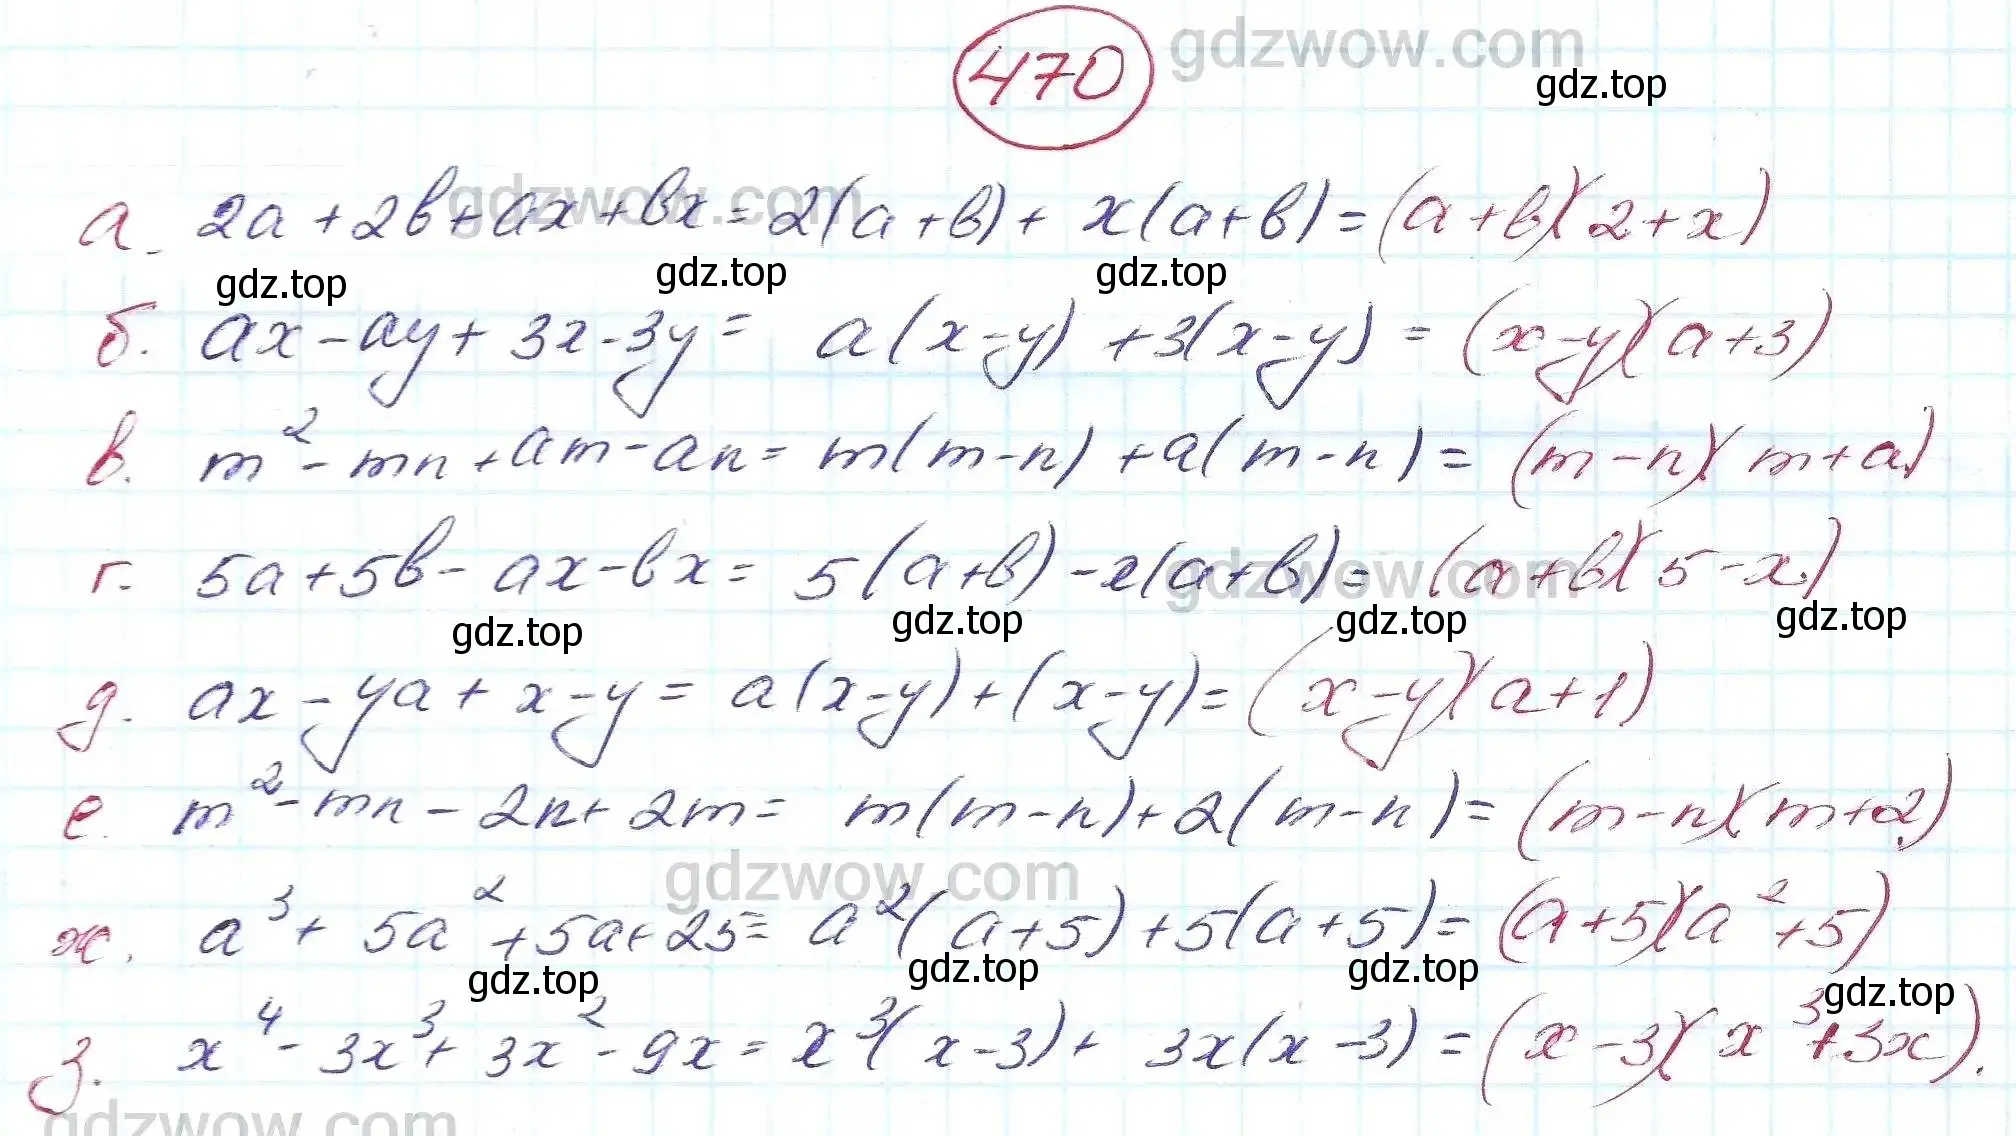 470 gdzwow.com
gdz.top
а. 2a + 2b + ax + bx = 2(a + b) + x(a + b) = (a + b)(2 + x)
gdzwow.com
gdz.top gdz.top gdz.top
б. ax - ay + 3x - 3y = a(x - y) + 3(x - y) = (x - y)(a + 3)
в. m² - mn + am - an = m(m - n) + a(m - n) = (m - n)(m + a)
г. 5a + 5b - ax - bx = 5(a + b) - x(a + b) = (a + b)(5 - x)
gdzwow.com
gdz.top gdz.top gdz.top gdz.top
д. ax - ya + x - y = a(x - y) + (x - y) = (x - y)(a + 1)
е. m² - mn - 2n + 2m = m(m - n) + 2(m - n) = (m - n)(m + 2)
gdzwow.com
ж. a³ + 5a² + 5a + 25 = a²(a + 5) + 5(a + 5) = (a + 5)(a² + 5)
gdz.top gdz.top gdz.top gdz.top
з. x⁴ - 3x³ + 3x² - 9x = x³(x - 3) + 3x(x - 3) = (x - 3)(x³ + 3x).
gdzwow.com